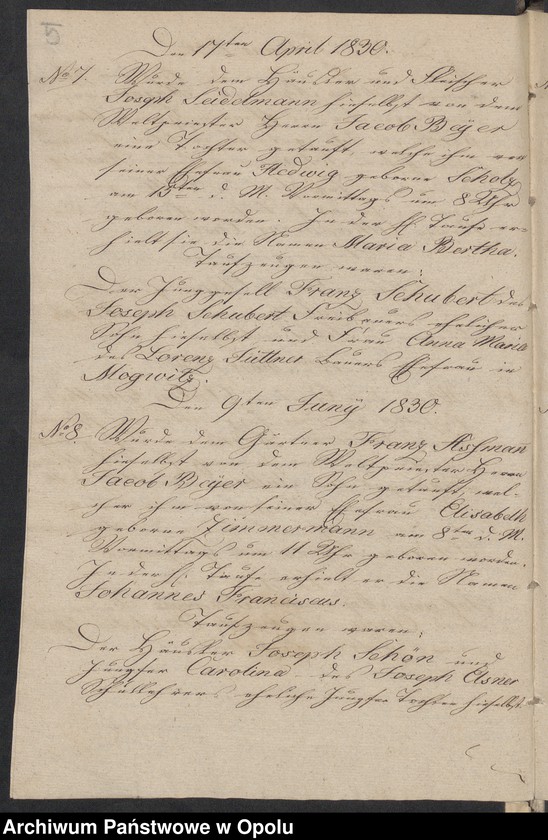 5
Den 17ten April 1830.
No 7. Wurde dem Häusler und Fleischer
Joseph Seidelmann hieselbst von dem
Weltpriester Herrn Jacob Beÿer
eine Tochter getauft, welche ihm von
seiner Ehefrau Hedwig geborne Scholz
am 15ten d. M. Vormittags um 8 Uhr
geboren worden. In der hl. Taufe er-
hielt sie die Namen Maria Bertha.
Taufzeugen waren:
Der Junggesell Franz Schubert des
Joseph Schubert Freibauers ehelicher
Sohn hieselbst und Frau Anna Maria
des Lorenz Süttner Bauers Ehefrau in
Mogwitz.
Den 9ten Junÿ 1830.
No 8. Wurde dem Gärtner Franz Assman
hieselbst von dem Weltpriester Herrn
Jacob Beÿer ein Sohn getauft, wel-
cher ihm von seiner Ehefrau Elisabeth
geborne Zimmermann am 8ten d. M.
Vormittags um 11 Uhr geboren worden.
In der hl. Taufe erhielt er die Namen
Johannes Franciscus.
Taufzeugen waren:
Der Häusler Joseph Schön und
Jungfer Carolina des Joseph Elsner
Schullehrers eheliche Jungfer Tochter hieselbst.
Archiwum Państwowe w Opolu